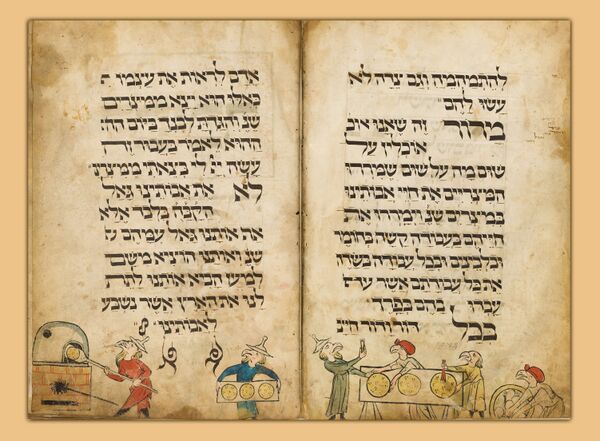 להתמהמה וגם צדה לא
עשו להם
מרור זה שאנו אוכ
אוכלין על
שום מה על שום שמררו
המצריים את חיי אבותינו
במצרים שנ וימררו את
חייהם בעבודה קשה בחומר
ובלבנים ובכל עבודה בשדה
את כל עבודתם אשר עב
עבדו בהם בפרך
בכל דור ודור חייב
אדם לראות את עצמו כ
כאלו הוא יצא ממצרים
שנ והגדת לבנך ביום ההו
ההוא לאמר בעבור זה
עשה לי בצאתי ממצרים
לא את אבותינו גאל
הקבה בלבד אלא
את אותנו גאל עמהם ש
שנ ואותנו הוציא משם
למען הביא אותנו לתת
לנו את הארץ אשר נשבע
לאבותינו